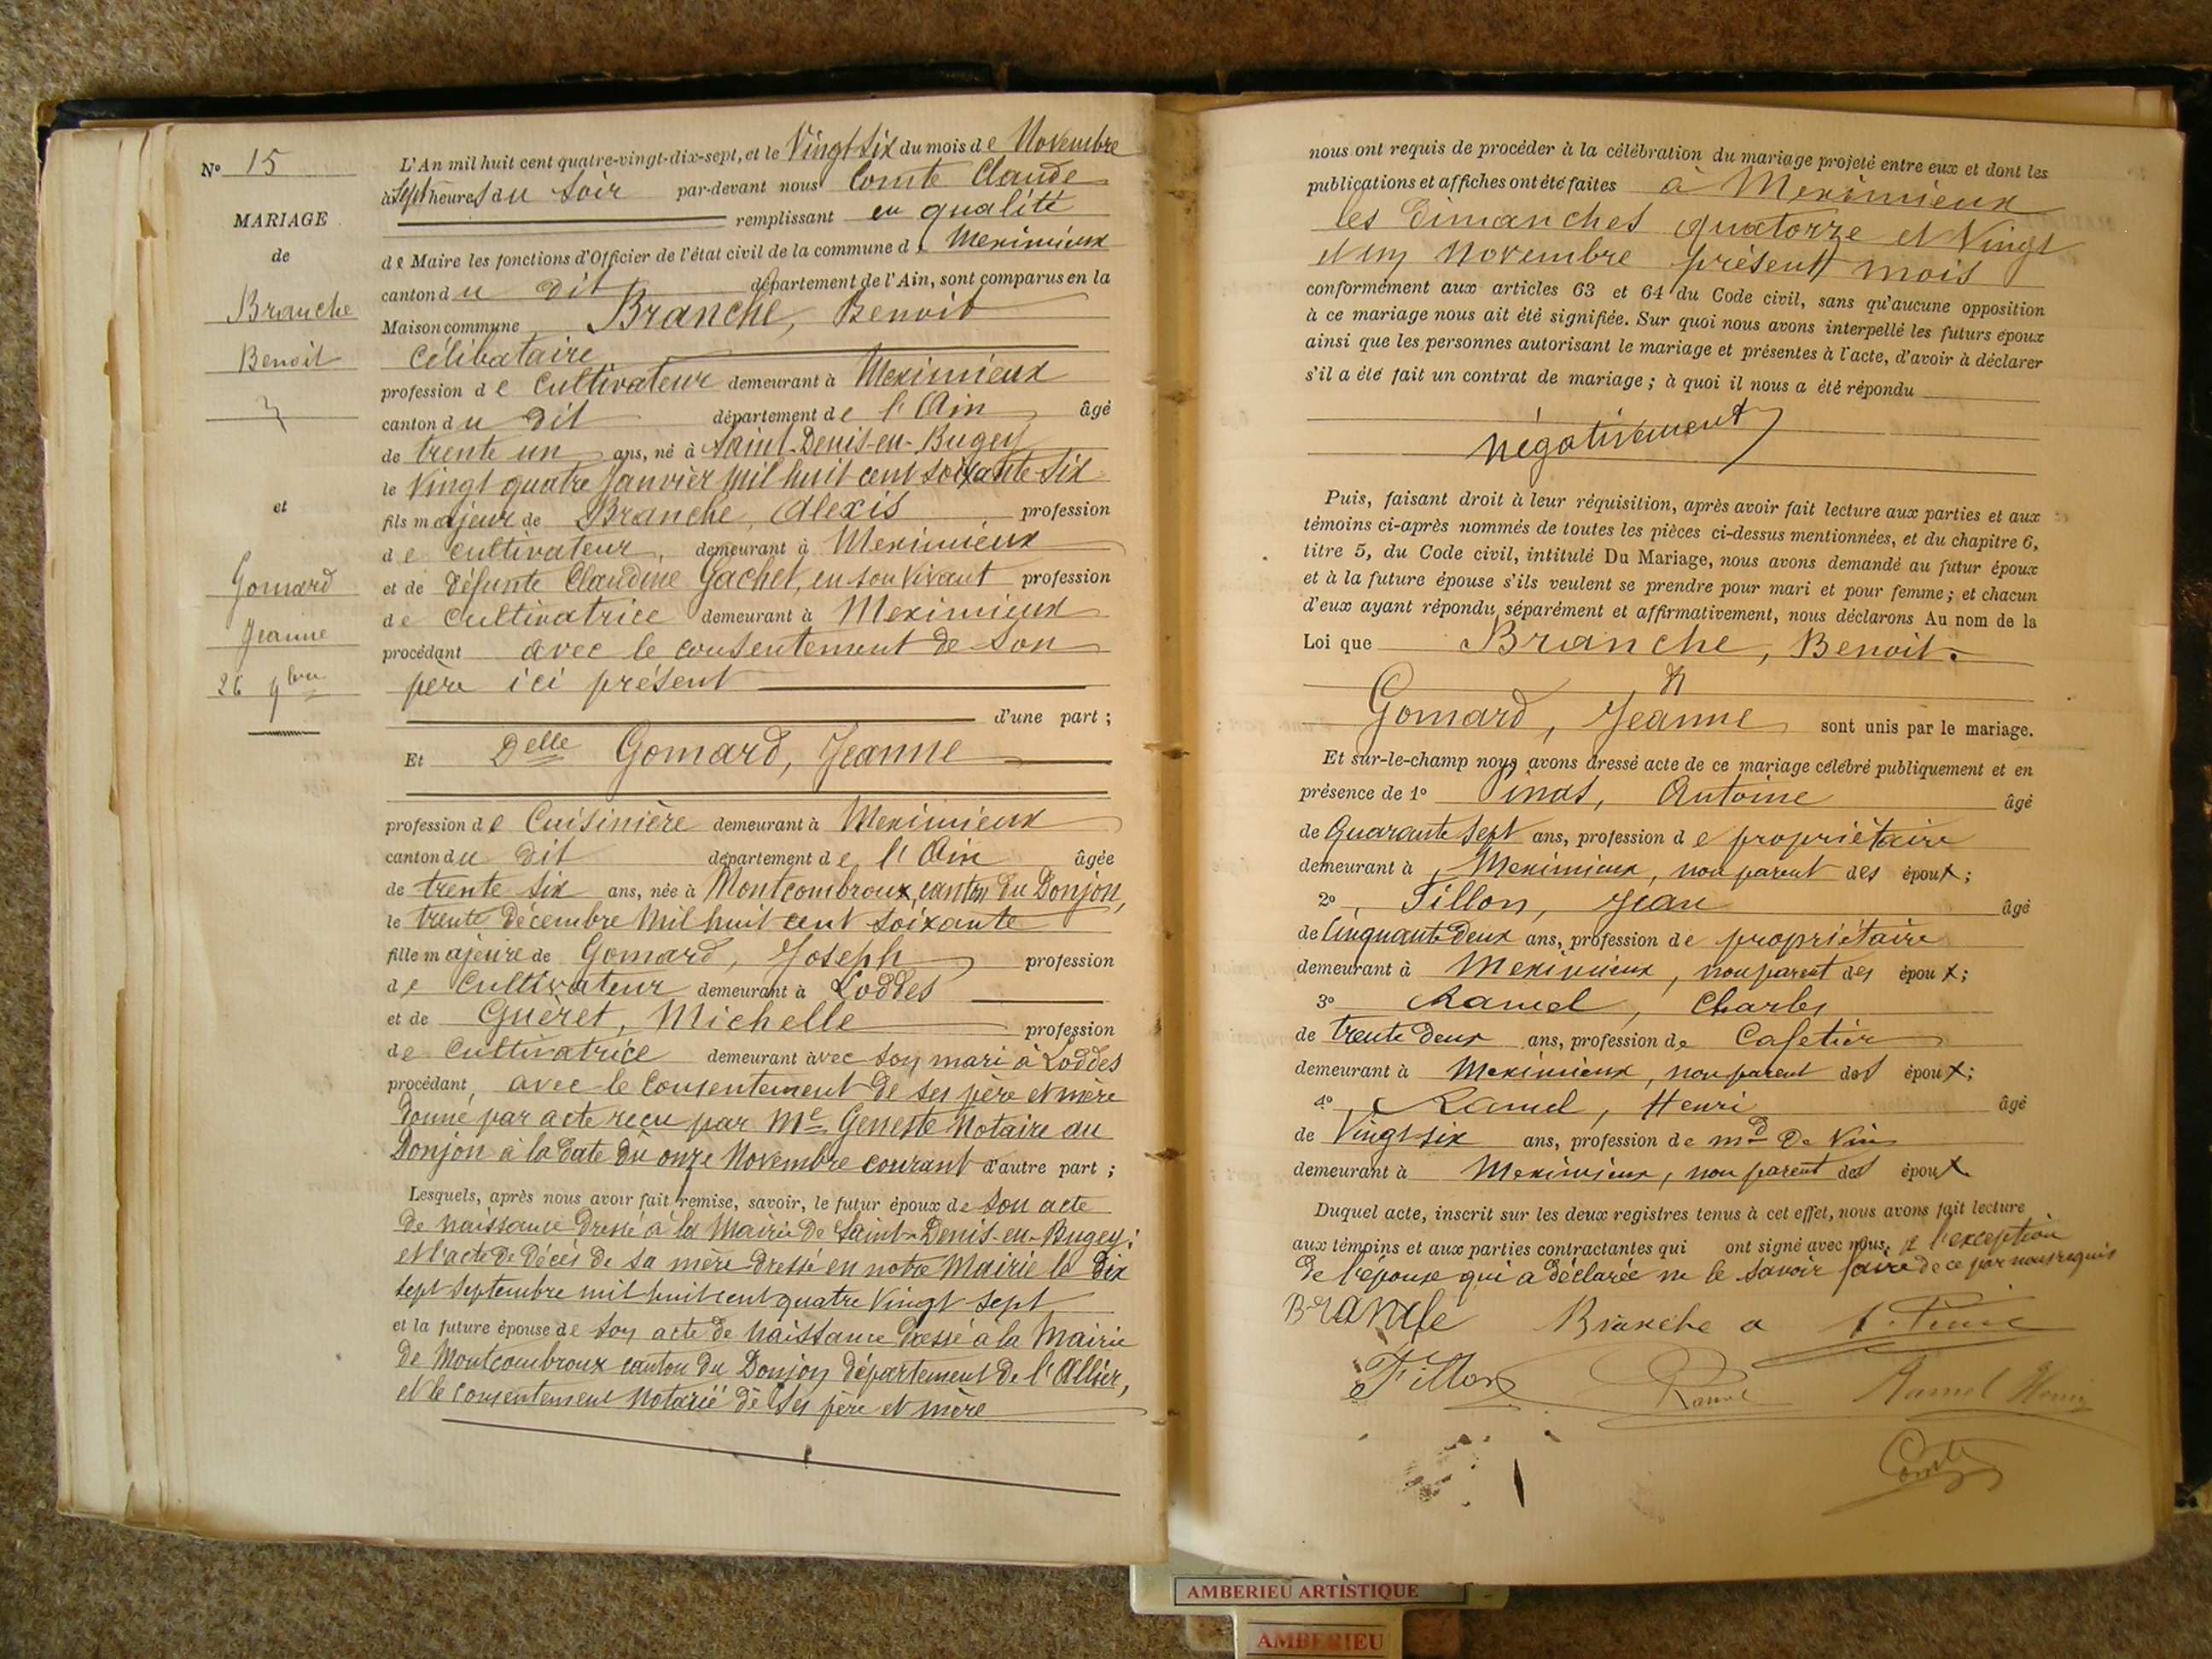 N° 15
MARIAGE
de
Branche
Benoit
et
Gomard
Jeanne
26 9bre
L'An mil huit cent quatre-vingt-dix-sept, et le Vingt Six du mois de Novembre
à Sept heures du Soir par-devant nous Comte Claude
remplissant en qualité
de Maire les fonctions d'Officier de l'état civil de la commune de Meximieux
canton du dit département de l'Ain, sont comparus en la
Maison commune Branche, Benoit
Célibataire
profession de Cultivateur demeurant à Meximieux
canton du dit département de l'Ain âgé
de trente un ans, né à Saint-Denis-en-Bugey
le Vingt quatre Janvier Mil huit cent soixante Six
fils majeur de Branche, Alexis profession
de Cultivateur, demeurant à Meximieux
et de défunte Claudine Gachet, en son Vivant profession
de Cultivatrice demeurant à Meximieux
procédant avec le consentement de Son
père ici présent
d'une part ;
Et Delle Gomard, Jeanne
profession de Cuisinière demeurant à Meximieux
canton du dit département de l'Ain âgée
de trente Six ans, née à Montcombroux, canton du Donjon,
le trente Décembre Mil huit cent soixante
fille majeure de Gomard, Joseph profession
de Cultivateur demeurant à Loddes
et de Guèret, Michelle profession
de Cultivatrice demeurant avec son mari à Loddes
procédant avec le Consentement de ses père et mère
donné par acte reçu par Me Geneste Notaire au
Donjon à la date du onze Novembre courant d'autre part ;
Lesquels, après nous avoir fait remise, savoir, le futur époux de Son acte
de naissance dressé à la Mairie de Saint-Denis-en-Bugey;
et l'acte de décès de sa mère dressé en notre Mairie le dix
sept Septembre mil huit cent quatre Vingt Sept
et la future épouse de son acte de Naissance dressé à la Mairie
de Montcombroux canton du Donjon département de l'Allier,
et le Consentement Notarié de ses père et mère
nous ont requis de procéder à la célébration du mariage projeté entre eux et dont les
publications et affiches ont été faites à Meximieux
les Dimanches quatorze et Vingt
et un Novembre présent mois
conformément aux articles 63 et 64 du Code civil, sans qu'aucune opposition
à ce mariage nous ait été signifiée. Sur quoi nous avons interpellé les futurs époux
ainsi que les personnes autorisant le mariage et présentes à l'acte, d'avoir à déclarer
s'il a été fait un contrat de mariage ; à quoi il nous a été répondu
négativement
Puis, faisant droit à leur réquisition, après avoir fait lecture aux parties et aux
témoins ci-après nommés de toutes les pièces ci-dessus mentionnées, et du chapitre 6,
titre 5, du Code civil, intitulé Du Mariage, nous avons demandé au futur époux
et à la future épouse s'ils veulent se prendre pour mari et pour femme ; et chacun
d'eux ayant répondu séparément et affirmativement, nous déclarons Au nom de la
Loi que Branche, Benoit.
et
Gomard, Jeanne sont unis par le mariage.
Et sur-le-champ nous avons dressé acte de ce mariage célébré publiquement et en
présence de 1° Antoine âgé
de Quarante Sept ans, profession de propriétaire
demeurant à Meximieux, non parent des époux ;
2° Fillon, Jean âgé
de Cinquante Deux ans, profession de propriétaire
demeurant à Meximieux, non parent des époux ;
3° Ramel, Charles
de trente Deux ans, profession de Cafetier
demeurant à Meximieux, non parent des époux ;
4° Ramel, Henri âgé
de Vingt six ans, profession de md de Vin
demeurant à Meximieux, non parent des époux
Duquel acte, inscrit sur les deux registres tenus à cet effet, nous avons fait lecture
aux témoins et aux parties contractantes qui ont signé avec nous, à l'exception
de l'épouse qui a déclarée ne le savoir faire de ce par nous requis
Branche Branche a
Fillon Ramel Ramel Henri
Comte
AMBERIEU ARTISTIQUE
AMBERIEU